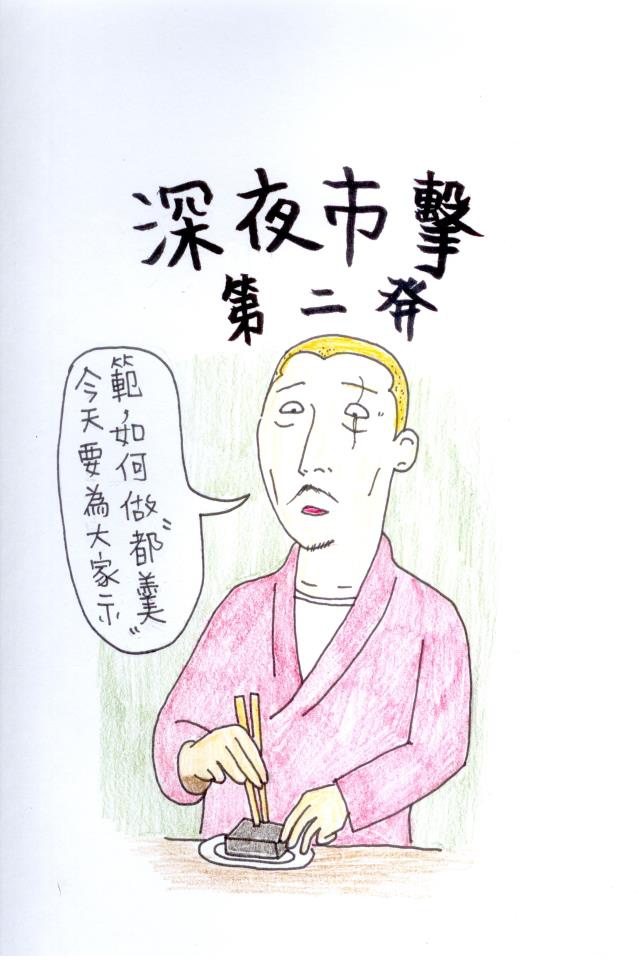 深夜市擊
第二発
今天要為大家示
範,如何做"都羹"